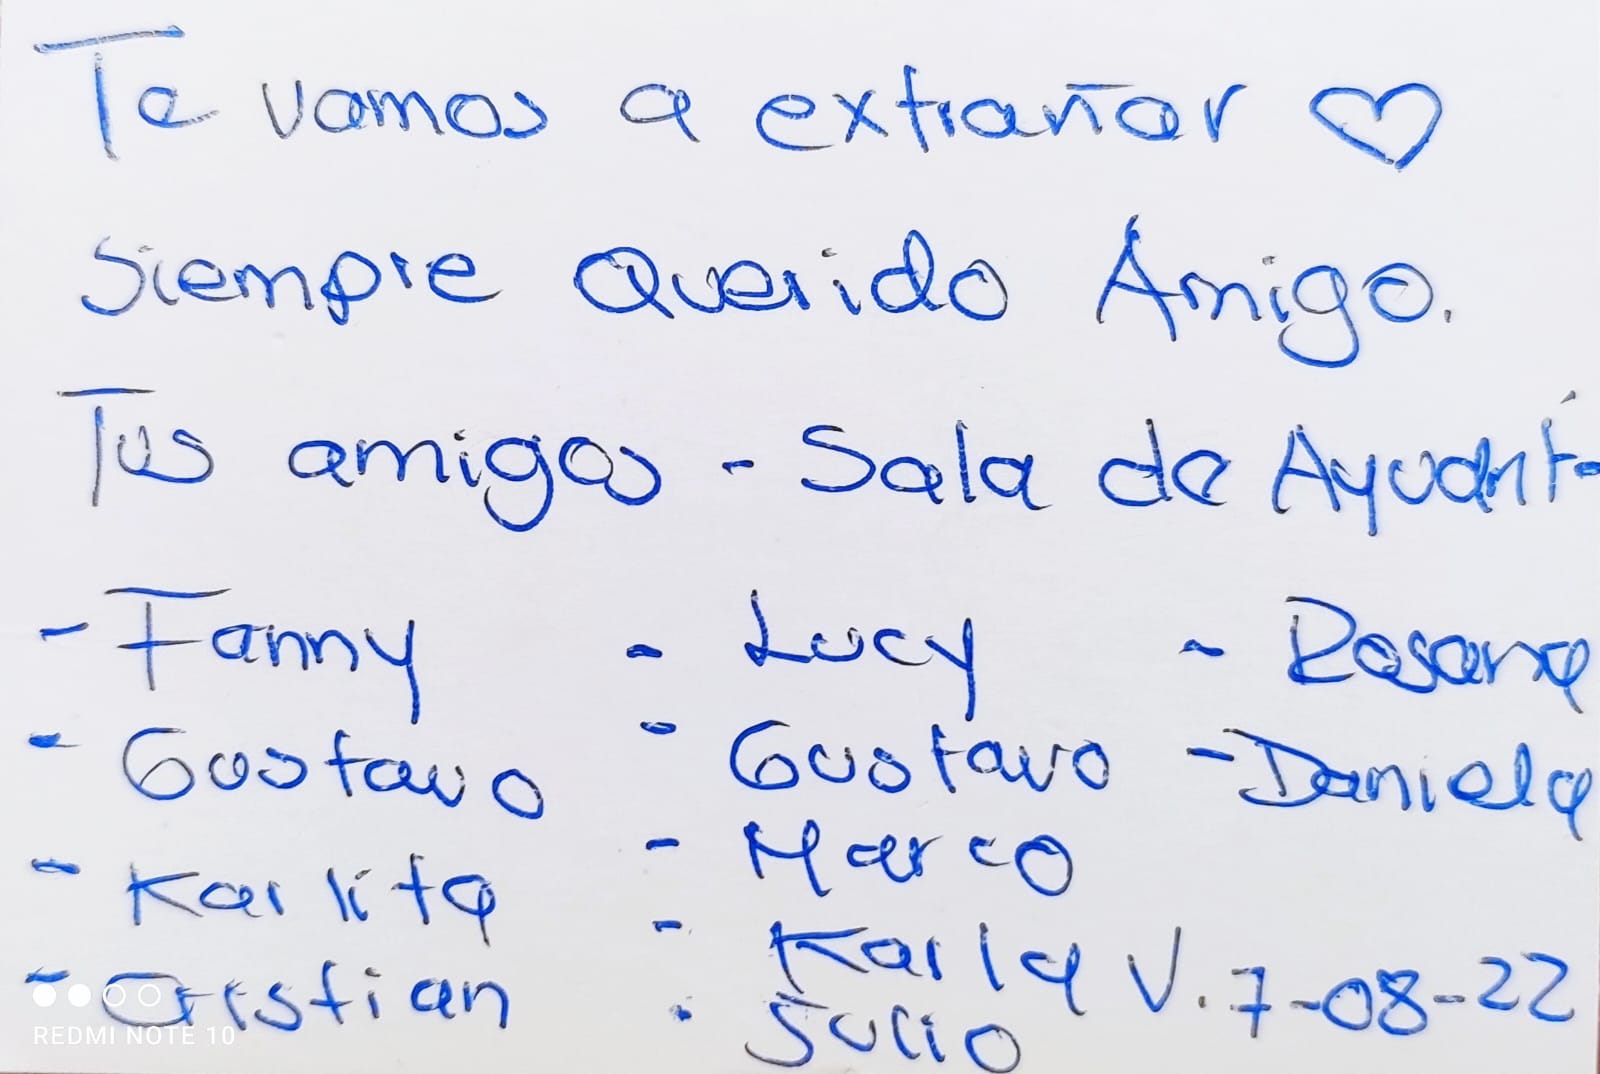 Te vamos a extrañar ♡
siempre Querido Amigo.
Tus amigos - Sala de Ayudant.
- Fanny - Lucy - Rosana
- Gustavo - Gustavo - Daniela
- Karlita - Marco
- Cristian - Karla V. 7-08-22
- Julio
REDMI NOTE 10